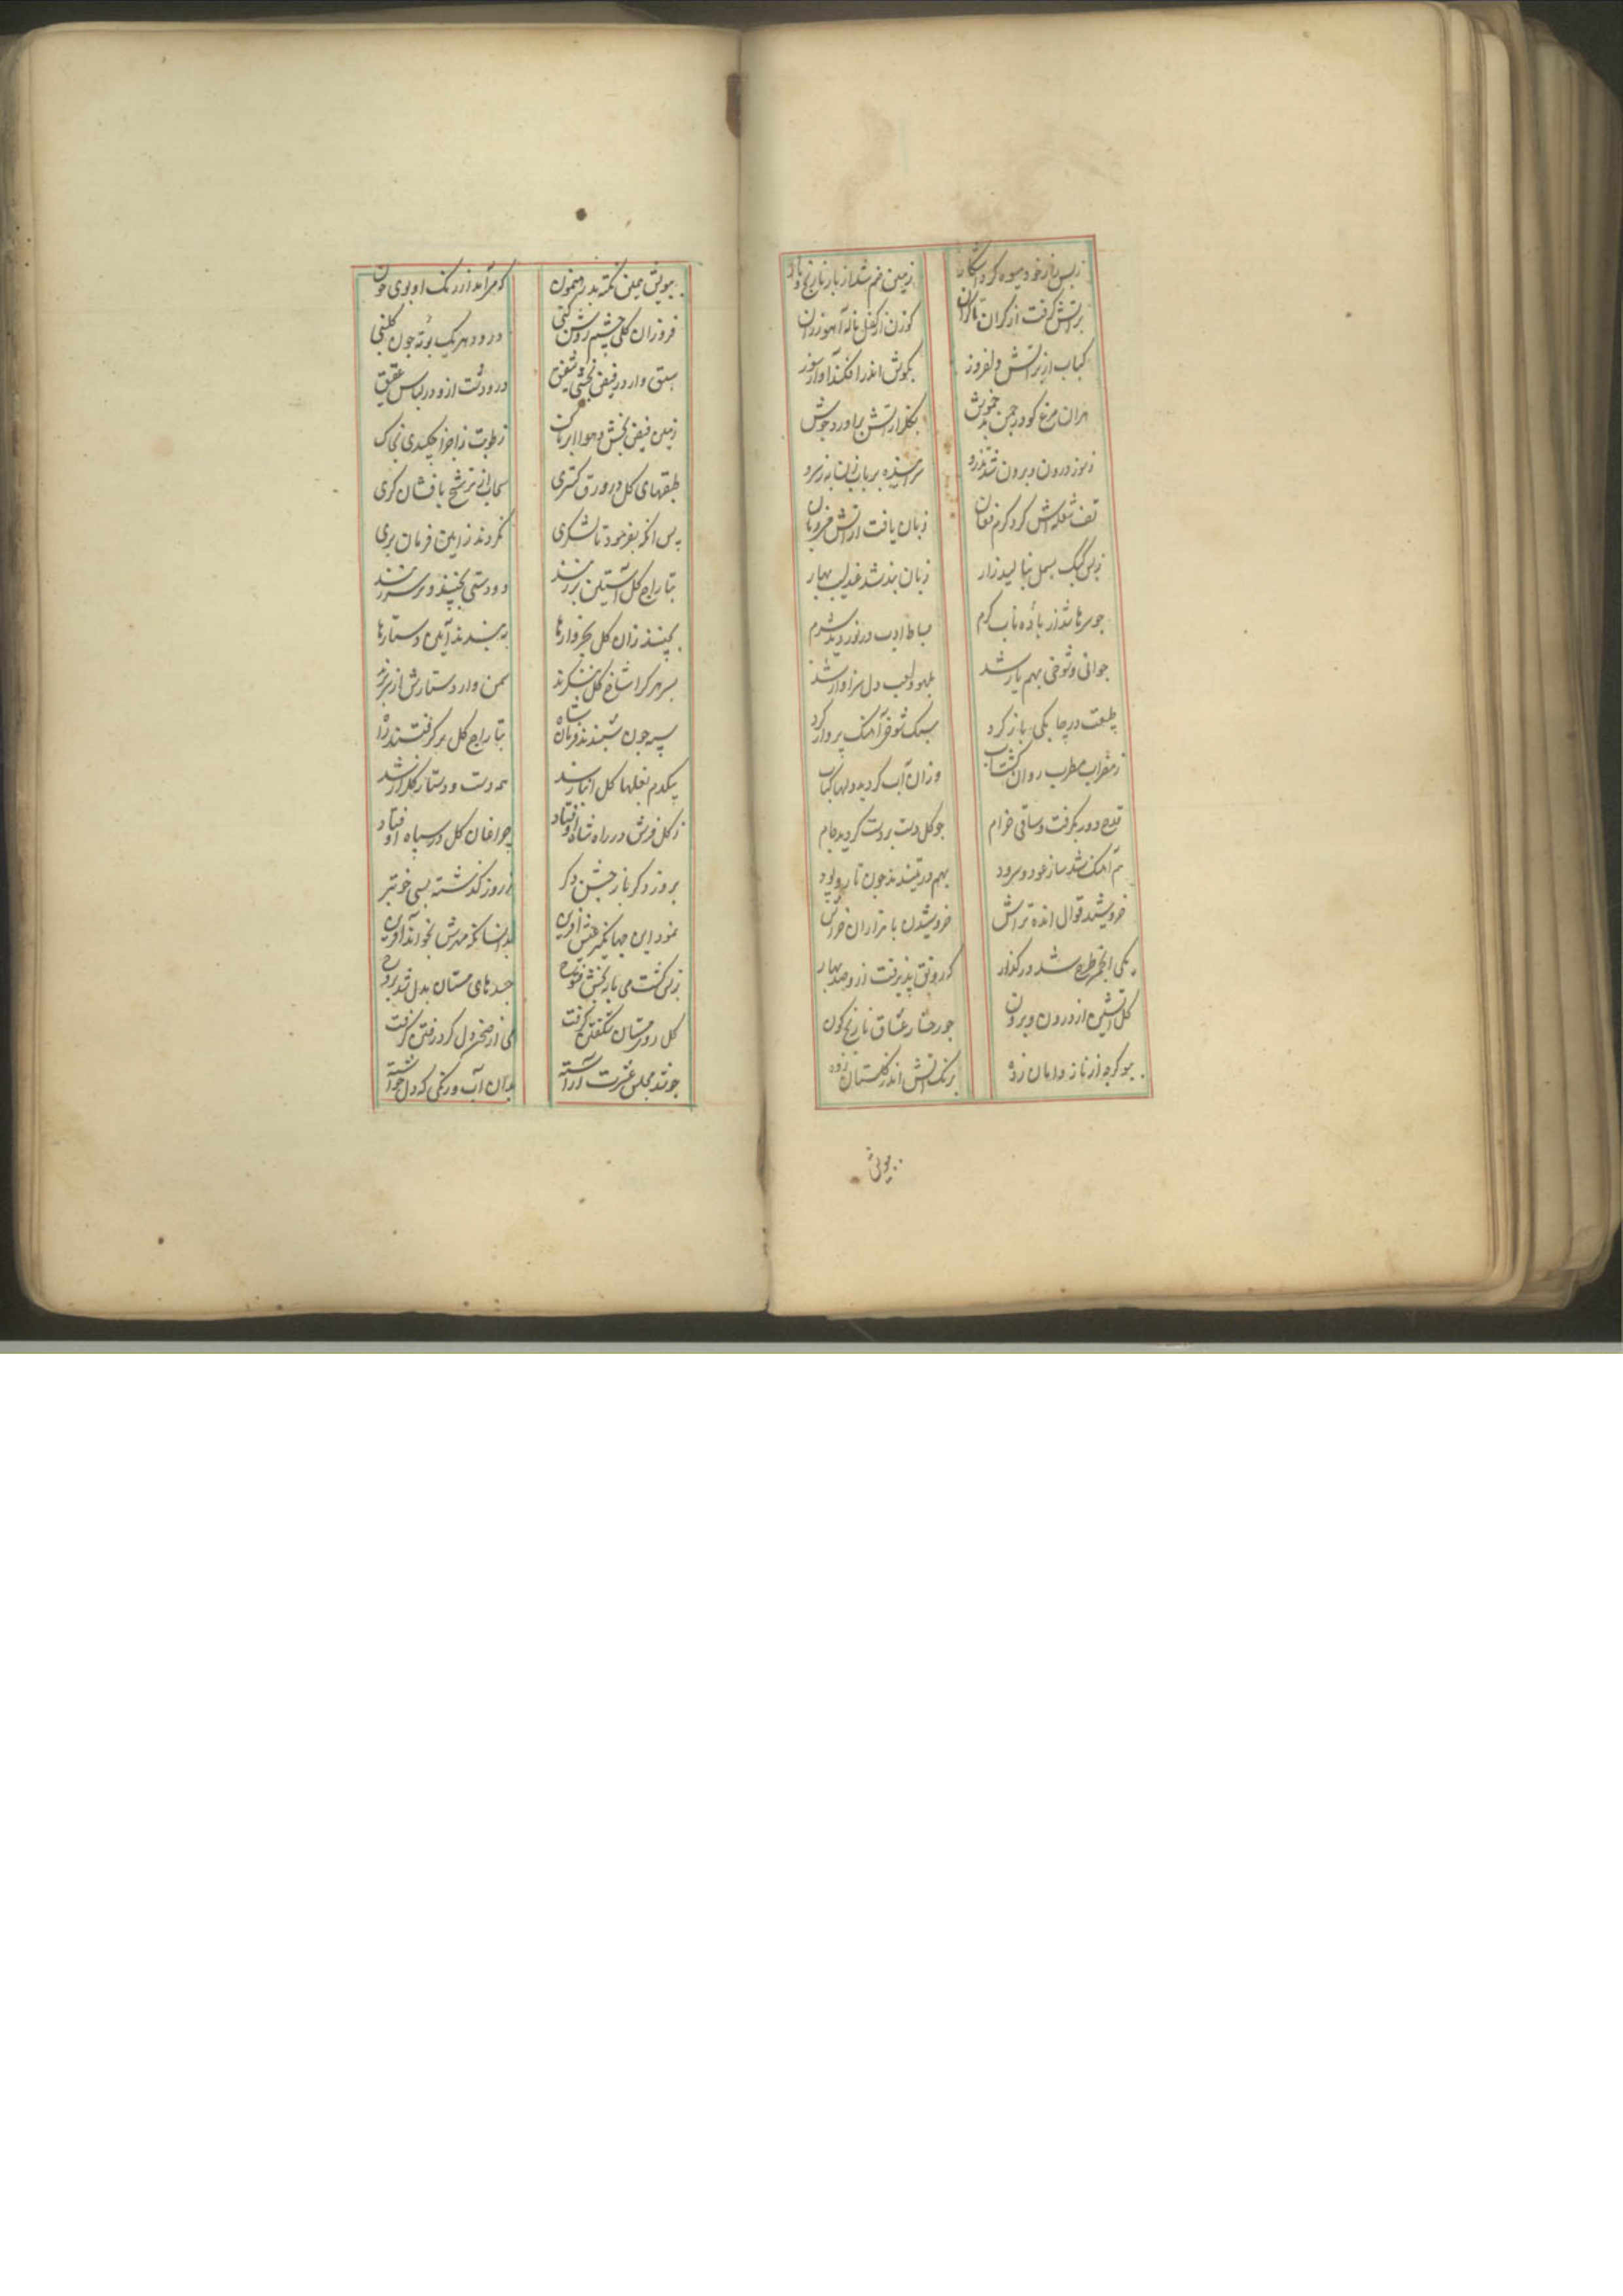 زبس ناز خود میوه کرد آشکار زمین خم شد از بار نارنج و نار
بر آتش گرفت از کران تا کران گوزن از کفل ناله آهو ز ران
کباب از بر آتش دلفروز بگوش اندر افکند آواز سوز
هران مرغ کو در چمن بد خموش بگلزار آتش برآورد جوش
ز سوز درون و برون شد تذرو
تف شعله اش کرد گرم فغان زبان یافت از آتش
زبس کبک بسمل بنالید زار زبان بند شد عندلیب بهار
چو سرها شد از باده ناب گرم بساط ادب در نوردید شرم
جوانی و شوخی بهم یار شد بلهو و لعب دل سزاوار شد
طبیعت در چابکی باز کرد سبک شوق آهنگ پرواز کرد
ز مضراب مطرب روان گشت آب وزان آب گردید دلها کباب
قدح دور بگرفت و ساقی خرام چو گل دست بر دست گردید جام
هم آهنگ شد ساز عود و سرود بهم در تنیدند چون تار و پود
خروشید قوال انده تراش خروشیدن با هزاران خراش
یکی شد در کنار کزو رونق پذیرفت ازو صد بهار
گل آتشین از درون و برون چو رخسار عشاق نارنج گون
چو گرچه از ناز دامان زده برنگ آتش اندر گلستان زده
ببویش
ببویش همین نکته بد رهنمون که می آمد از رنگ او بوی خون
فروزان گلی چشم روشن کنی درو هر یک بوته چون گلبنی
در و دشت ازو در لباس عقیق
زمین فیض بخش و هوا ابرناک رطوبت ز اجزا چکیدی بخاک
طبقهای گل در ورق گستری سحابی ترشح بافشان گری
پس آنگه بفرمود تا لشکری نکردند زاین فرمان بری
بتاراج گل آستین برزنند دو دستی بچینند و بر سر زنند
بچینند زان گل بخروارها ببندند آیین دستارها
بسر هر کرا شاخ گل ننگرند سمن وار دستارش از سر برند
سپه چون شنیدند فرمان شاه بتاراج گل بر گرفتند راه
بیکدم بغلها گل انبار شد همه دست و دستار گلزار شد
ز گل فرش در راه شاه اوفتاد چراغان گل در سپاه اوفتاد
بروز دگر باز جشن دگر ز روز گذشته بسی خوبتر
نمود این جهانگیر عیش آفرین بدانسانکه مهرش بخواند آفرین
جسدهای مستان بدل شد بروح
گل روی مستان شکفتن گرفت می از صخره دل کرد رفتن گرفت
چو شد مجلس عشرت آراسته بدان آب و رنگی که دل خواسته